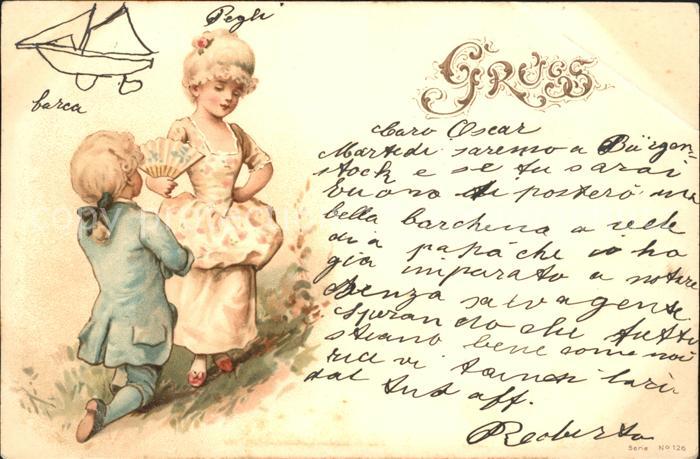 Pegli
barca
GRUSS
Caro Oscar
Martedì saremo a Bürgen-
stock e se tu sarai
buono ti porterò una
bella barchena a vele
di a papà che io ho
già imparato a notare
senza salvagente
Sperando che tutti
stiano bene come noi
vi
dal tuo aff.
Roberto
Serie No 126